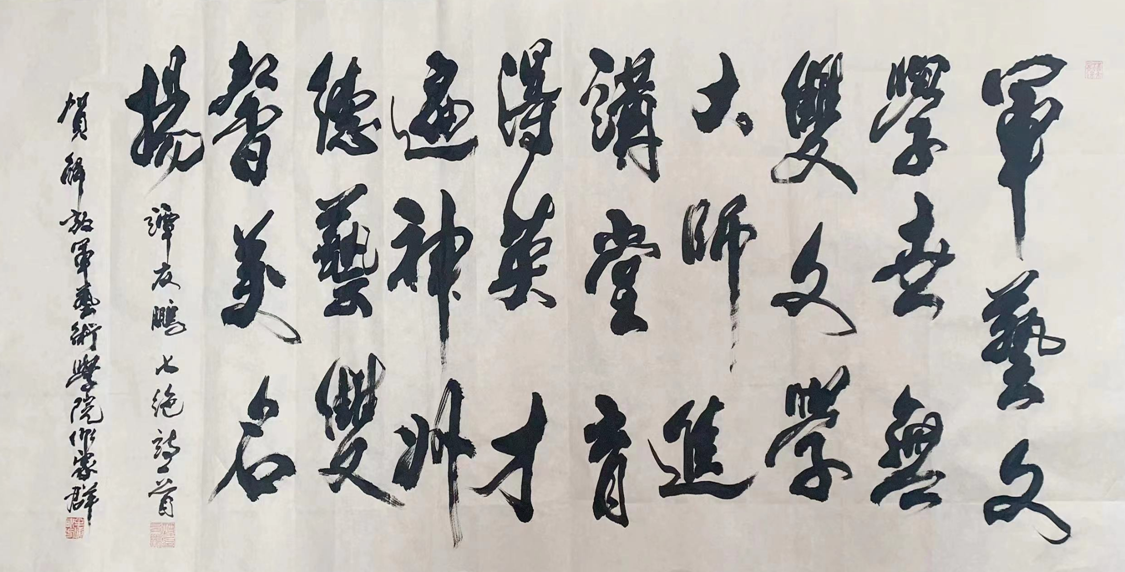 軍藝文
學世無
雙文學
大師進
講堂育
得英才
遍神州
德藝雙
馨美名
揚
譚友鵬七絕詩一首
賀解放軍藝術學院作家群